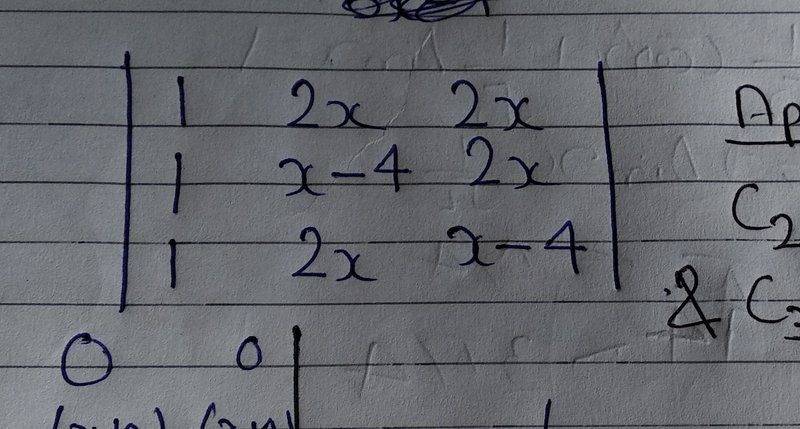 1 2x 2x Ap
1 x-4 2x
1 2x x-4 C2
& C3
0 0